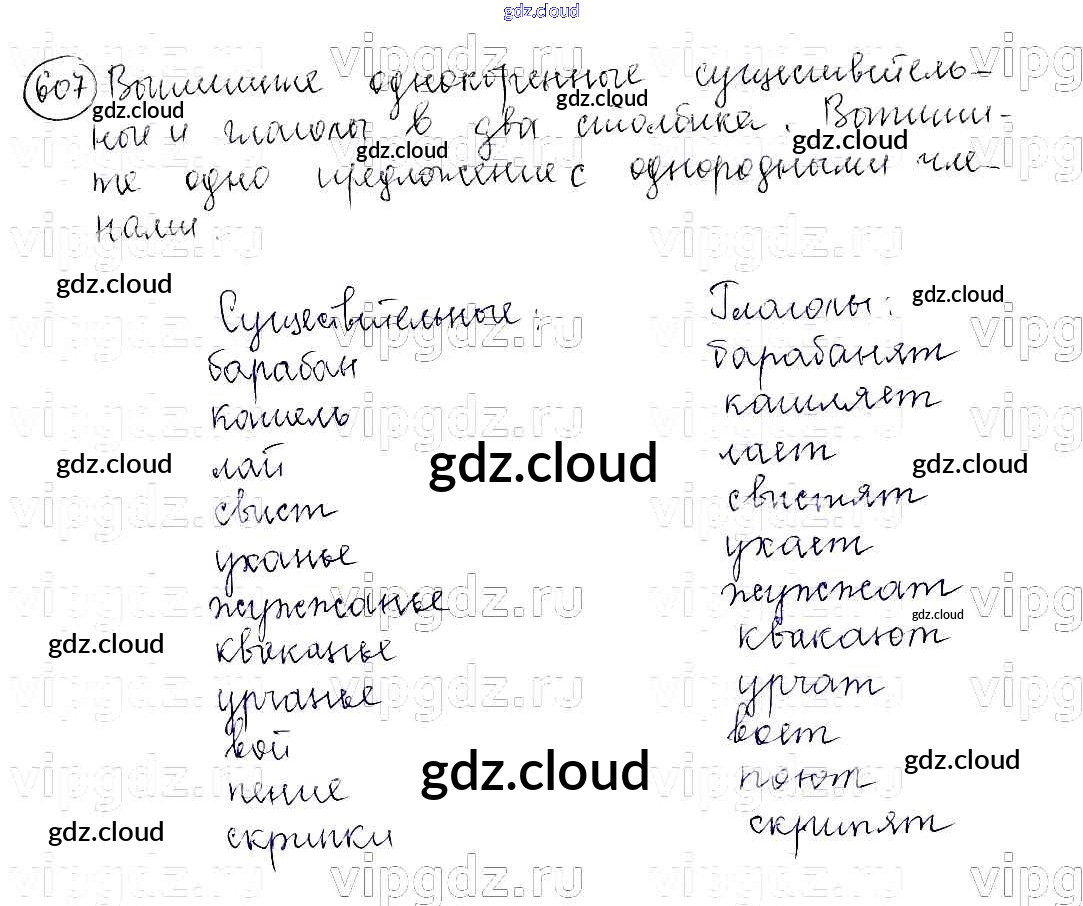 gdz.cloud
607 Выпишите однокоренные существитель-
ные и глаголы в два столбика. Выпиши-
те одно предложение с однородными чле-
нами.
Существительные: Глаголы:
барабан барабанят
кашель кашляет
лай лает
свист свистят
уханье ухает
жужжанье жужжат
кваканье квакают
урчанье урчат
вой воет
пение поют
скрипки скрипят